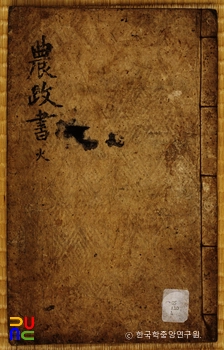 農政書 火
ⓒ 한국학중앙연구원